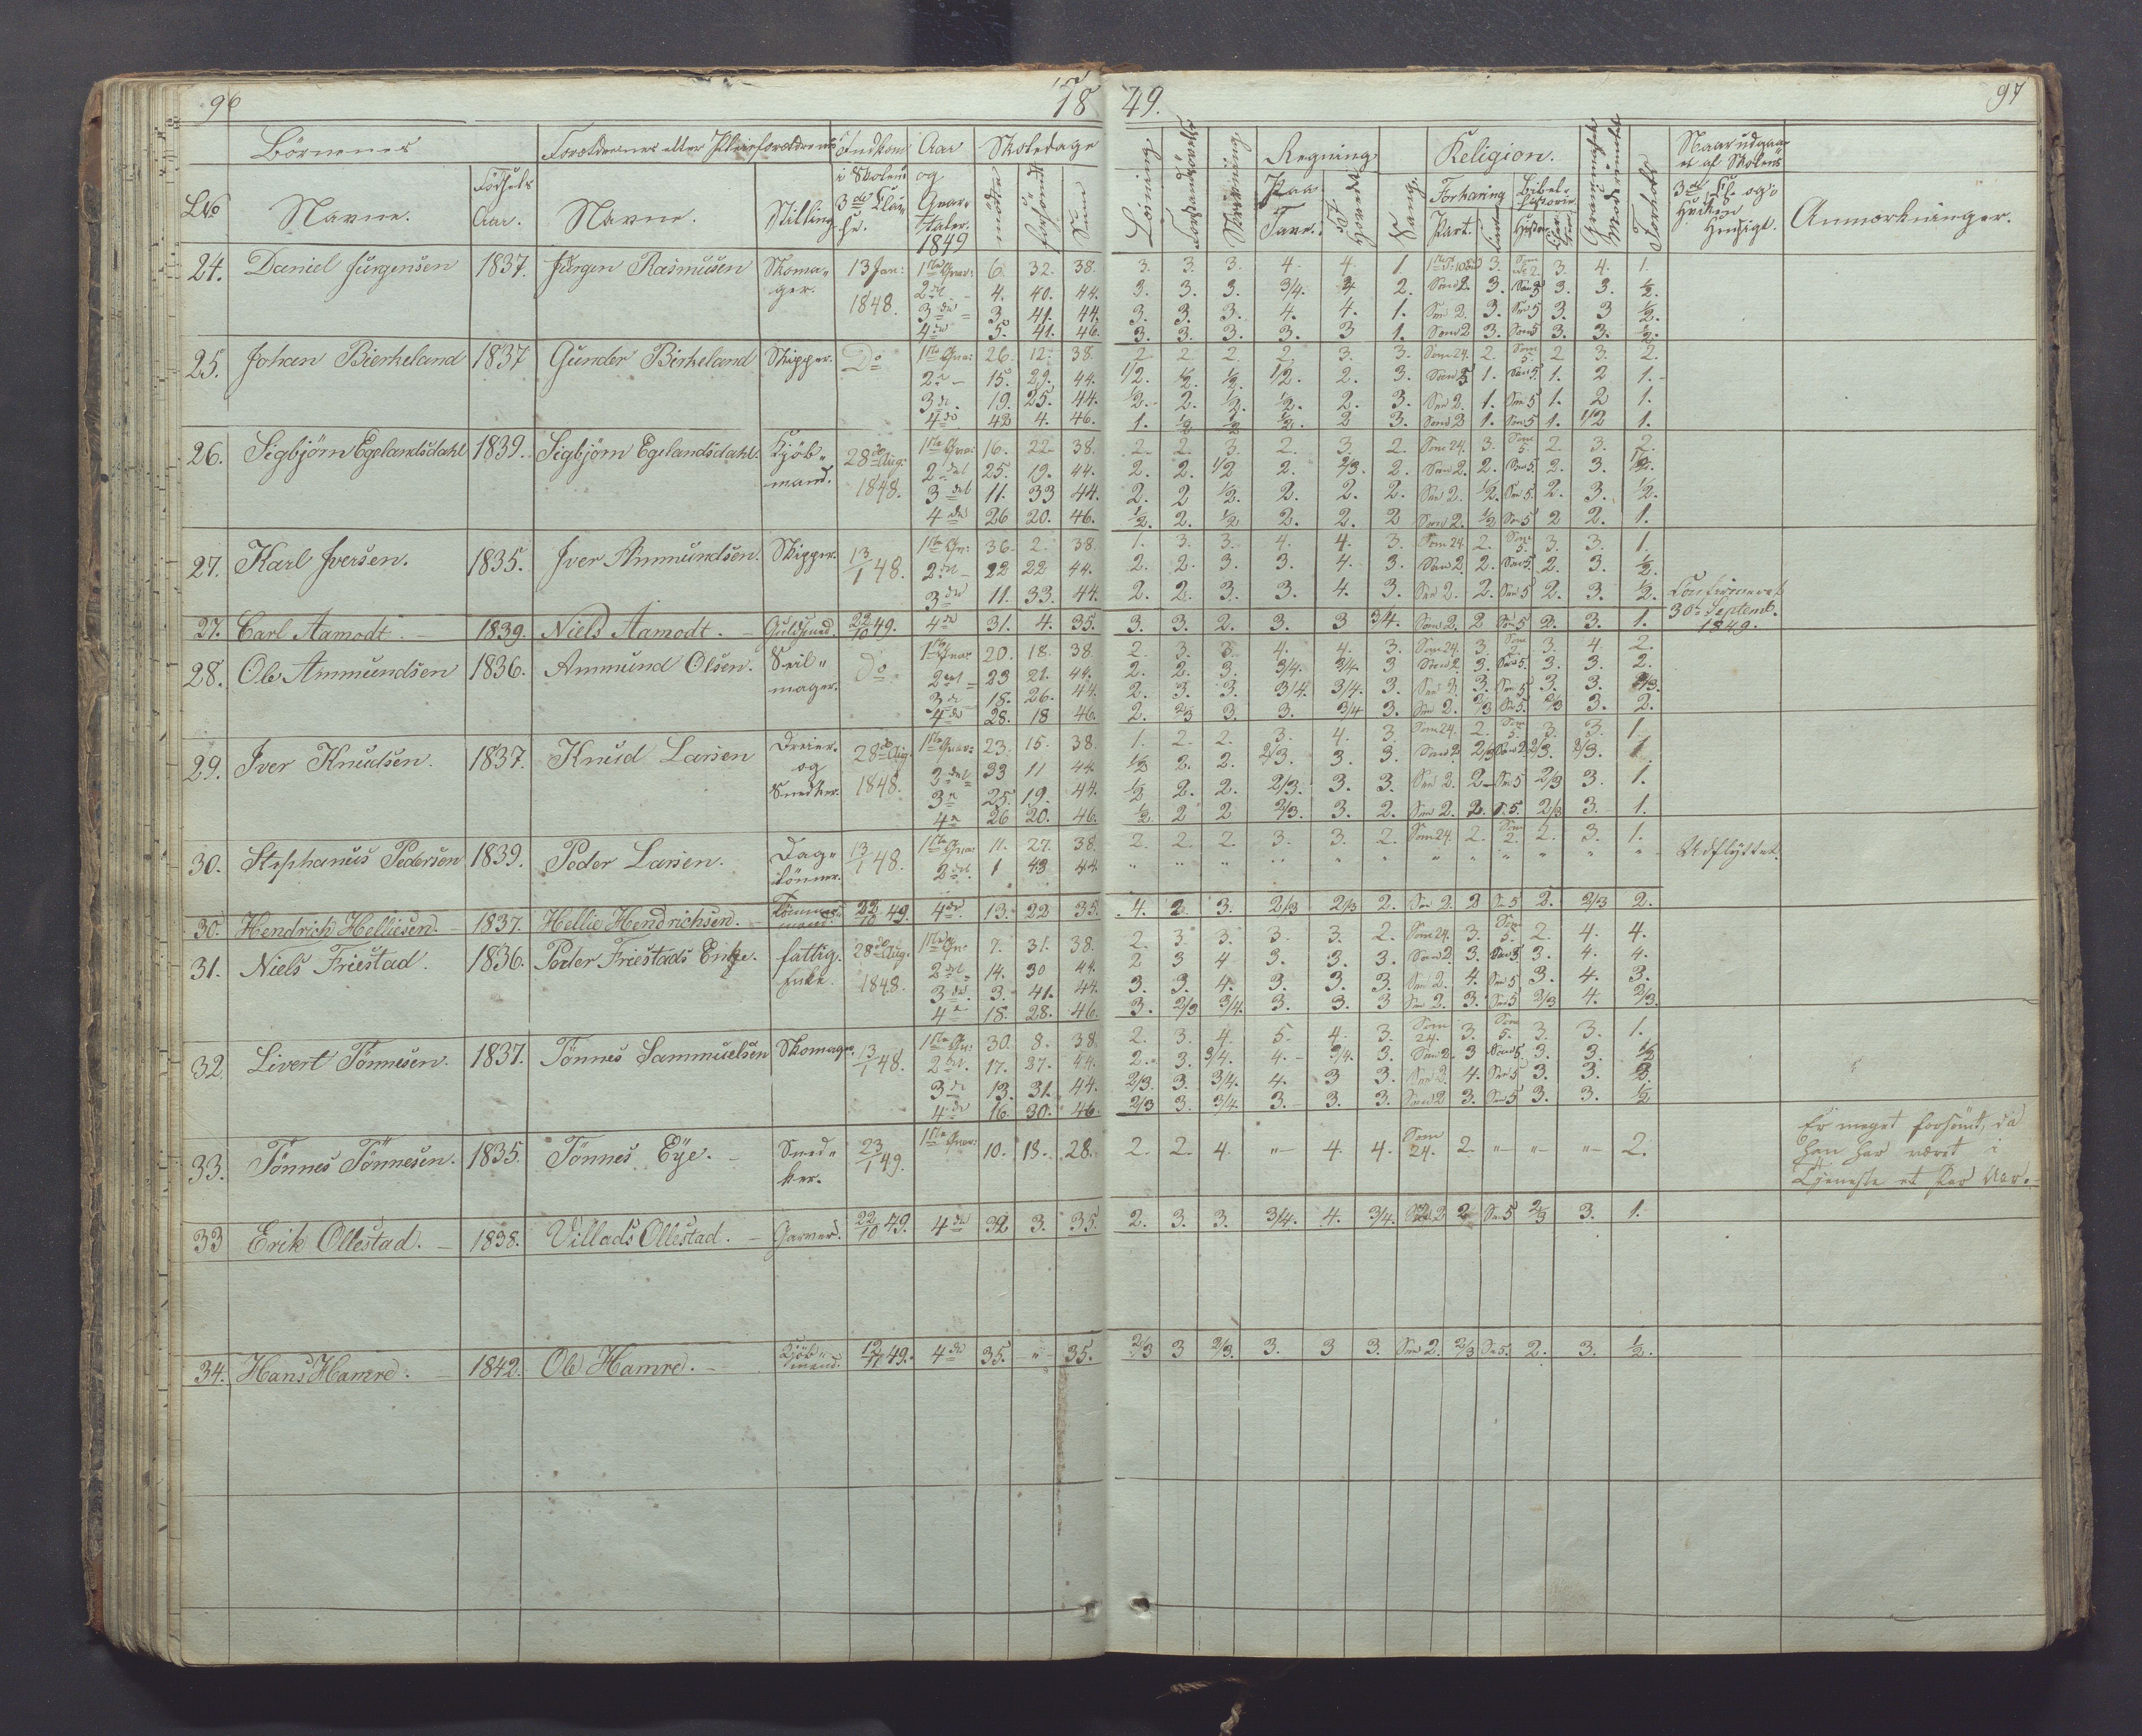 96 18 49. 97
Börnenes Forældrenes eller Pleieforældrenes Indkom Aar Skoledage Læsning. Forstandsøvelse Skrivning. Regning Sang. Religion. Grammatik Modersmaal Forhold Naar udgaaet af Skolens
i Skolens og mødte forsömte Sum Paa Tavle. I Hovedet Forklaring Bibelhistorie 3die Cl. og i
LNo Navne. Födsels Aar. Navne. Stilling 3die Classe. Qvartaler. 1849 Part. Hvilken Hensigt. Anmærkninger.
24. Daniel Jürgensen 1837. Jürgen Rasmussen Skomager. 13 Jan: 1848. 1ste Qvar: 6. 32. 38. 3. 3. 3. 4. 4. 1. 3. 3. 4. 1.
2det 4. 40. 44. 3. 3. 3. 3/4. 4 2. Som 2. 3. Som 5 3. 3. 1/2.
3die 3. 41. 44. 3. 3. 3. 4. 4. 1. Som 2. 3. Som 5 3. 3 1/2.
4de 5. 41. 46. 3. 3. 3. 3. 3 1. Som 2 3. Som 5 3. 3. 1/2.
25. Johan Bierkeland 1837 Gunder Birkeland Skipper. Do 1ste Qvar: 26. 12. 38. 2 2. 2. 2. 3. 3. Som 24. 2. Som 5. 2 3. 2.
2det 15. 29. 44. 1/2. 1/2. 1/2. 1/2. 2. 3. Som 5 1. Som 5. 1. 2 1.
3die 19. 25. 44. 1/2. 2. 1/2. 1/2. 2. 3. Som 2. 1. Som 5 1. 2 1.
4de 42 4. 46. 1. 1/2 1/2 1/2 2 3. Som 2 1. Som 5 1. 1/2 1.
26. Sigbjörn Egelandsdahl 1839. Sigbjörn Egelandsdahl. Kjöbmand. 28de Aug. 1848. 1ste Qvar: 16. 22 38. 2. 2. 3. 2. 3. 2. Som 24. 3. Som 5. 2. 3. 2.
2det 25. 19. 44. 2. 2. 1/2 2. 2/3. 2. Som 2. 2. Som 5. 2. 3. 1/2.
3die 11. 33 44. 2. 2 1/2. 2. 2. 2. Som 2. 1/2. Som 5. 2. 3. 1/2.
4de 26 20. 46. 1/2. 2. 1/2 2. 2. 2 Som 2. 1/2 Som 5 2 2. 1.
27. Karl Iversen. 1835. Iver Ammundsen. Skipper. 13/1 48. 1ste Qv: 36. 2. 38. 1. 3. 3. 4. 4. 3. Som 24. 2. Som 5. 3. 3. 1.
2det 22 22 44. 2. 2. 3. 3. 4. 3. Som 2. 2. Som 5. 2. 3. 1/2.
3die 11. 33. 44. 2. 2. 3. 3. 4. 3. Som 2. 2. Som 5 2. 3. 1/2. Confirmeret 30te Septemb. 1849.
27. Carl Aamodt. 1839. Niels Aamodt. Guldsmed. 22/10 49. 4de 31. 4. 35. 3. 3. 2. 3. 3 3/4. Som 2. 2 Som 5 2. 3. 1.
28. Ole Ammundsen 1836. Ammund Olsen. Seilmager. Do 1ste Qvar 20. 18. 38 2. 3. 3. 4. 4. 3. Som 24. 3. Som 2. 3. 4. 2.
2det 23 21. 44. 2. 2. 3. 3/4. 3/4. 3 Som 2. 3. Som 5. 3. 3. 2.
3die 18. 26. 44. 2. 3. 3. 3/4. 3/4. 3. Som 2. 3. Som 5 3. 3. 2/3.
4de 28. 18 46. 2. 2/3 3. 3. 3/4 3. Som 2. 2/3 Som 5. 2/3 3. 2.
29. Iver Knudsen. 1837. Knud Larsen Dreier og Snedker. 28de Aug. 1848. 1ste Qvar: 23. 15. 38. 1. 2. 2. 3. 4. 3. Som 24. 2. Som 5. 3. 3. 1.
2det 33 11 44. 1/2 2. 2. 2/3. 3. 3. Som 2. 2/3 Som 2 2/3. 2/3. 1.
3e 25. 19. 44. 1/2 2. 2. 2/3. 3. 3. Som 2. 2. Som 5 2/3 3. 1.
4e 26 20. 46. 1/2 2 2 2/3. 3. 2. Som 2. 2. S. 5. 2/3 3. 1.
30. Stephanus Pedersen 1839. Peder Larsen. Daglönner. 13/1 48. 1ste Qvar: 11. 27. 38. 2. 2. 2. 3. 3. 2. Som 24. 2. Som 2. 2. 3. 1. Udflyttet.
2det 1 43 44 " " " " " " " " " " " "
30. Hendrich Helliesen. 1837. Hellie Hendrichsen. Tömmermand. 22/10 49. 4de 13. 22 35. 4. 2. 3. 2/3 2/3 2. Som 2. 2 Som 5 2. 2/3 2.
31. Niels Friestad. 1836. Peder Friestads Enke. fattig. Enke. 28de Aug. 1848. 1ste Qv: 7. 31. 38. 2. 3. 3. 3. 3. 2. Som 24. 3. Som 5. 2. 4. 4.
2det 14. 30 44. 2 3 4 3. 3. 3. Som 2. 3. Som 5. 3. 4. 4.
3die 3. 41. 44. 3. 3. 4. 3. 3. 3. Som 2. 4. Som 5 3. 4. 3.
4e 18. 28. 46. 3. 2/3 3/4. 3. 3. 3 Som 2. 3. Som 5 2/3 4. 2/3.
32. Livert Tönnesen. 1837. Tönnes Sammuelsen Skomager. 13/1 48. 1ste Qv: 30. 8. 38. 2. 3. 4. 5. 4. 3. Som 24. 3. Som 5. 3. 3. 1.
2det 17. 27. 44. 2. 3. 3/4. 4. 3/4. 3. Som 2. 3 Som 5. 3. 3. 1/2
3die 13. 31. 44. 2/3. 3. 3/4. 4. 3 3. Som 2. 4. Som 5 3. 3. 2.
4de 16. 30. 46. 2/3 3. 3/4. 3. 3. 3. Som 2 3. Som 5 3. 3. 1/2
33. Tönnes Tönnesen. 1835. Tönnes Eÿe. Snedker. 23/1 49. 1ste Qvar: 10. 18. 28. 2. 2. 4. " 4. 4. Som 24. 2. " " " 2. Er meget forsömt, da
han har været i
Tjeneste et Par Aar.
33 Erik Ollestad. 1838. Villads Ollestad. Garver. 22/10 49. 4de 32 3. 35. 2. 3. 3. 3/4. 4. 3/4. Som 2 2 Som 5 2/3 3. 1.
34. Hans Hamre. 1842. Ole Hamre. Kjöbmand. 12/11 49. 4de 35. " 35. 2/3 3 2/3. 3. 3 3. Som 2. 2/3 Som 5. 2. 3. 1/2.